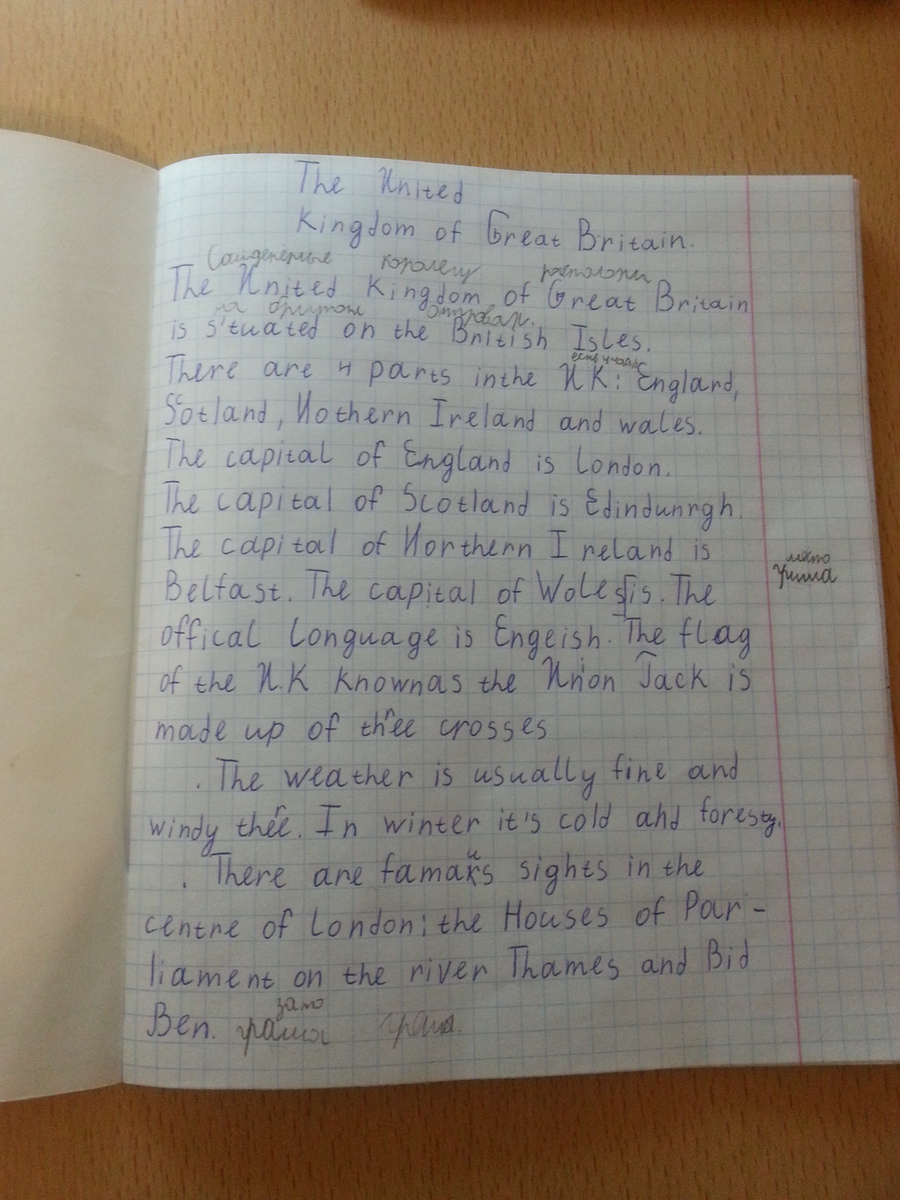 The United
Kingdom of Great Britain.
The United Kingdom of Great Britain
is situated on the British Isles.
There are 4 parts inthe UK: England,
Scotland, Nothern Ireland and wales.
The capital of England is London.
The capital of Scotland is Edindunrgh.
The capital of Northern Ireland is
Belfast. The capital of Woles is. The
offical Longuage is Engeish. The flag
of the U.K Knownas the Union Jack is
made up of three crosses
. The weather is usually fine and
windy thére. In winter it's cold and foresty.
. There are famous sights in the
centre of London: the Houses of Par-
liament on the river Thames and Bid
Ben. зато